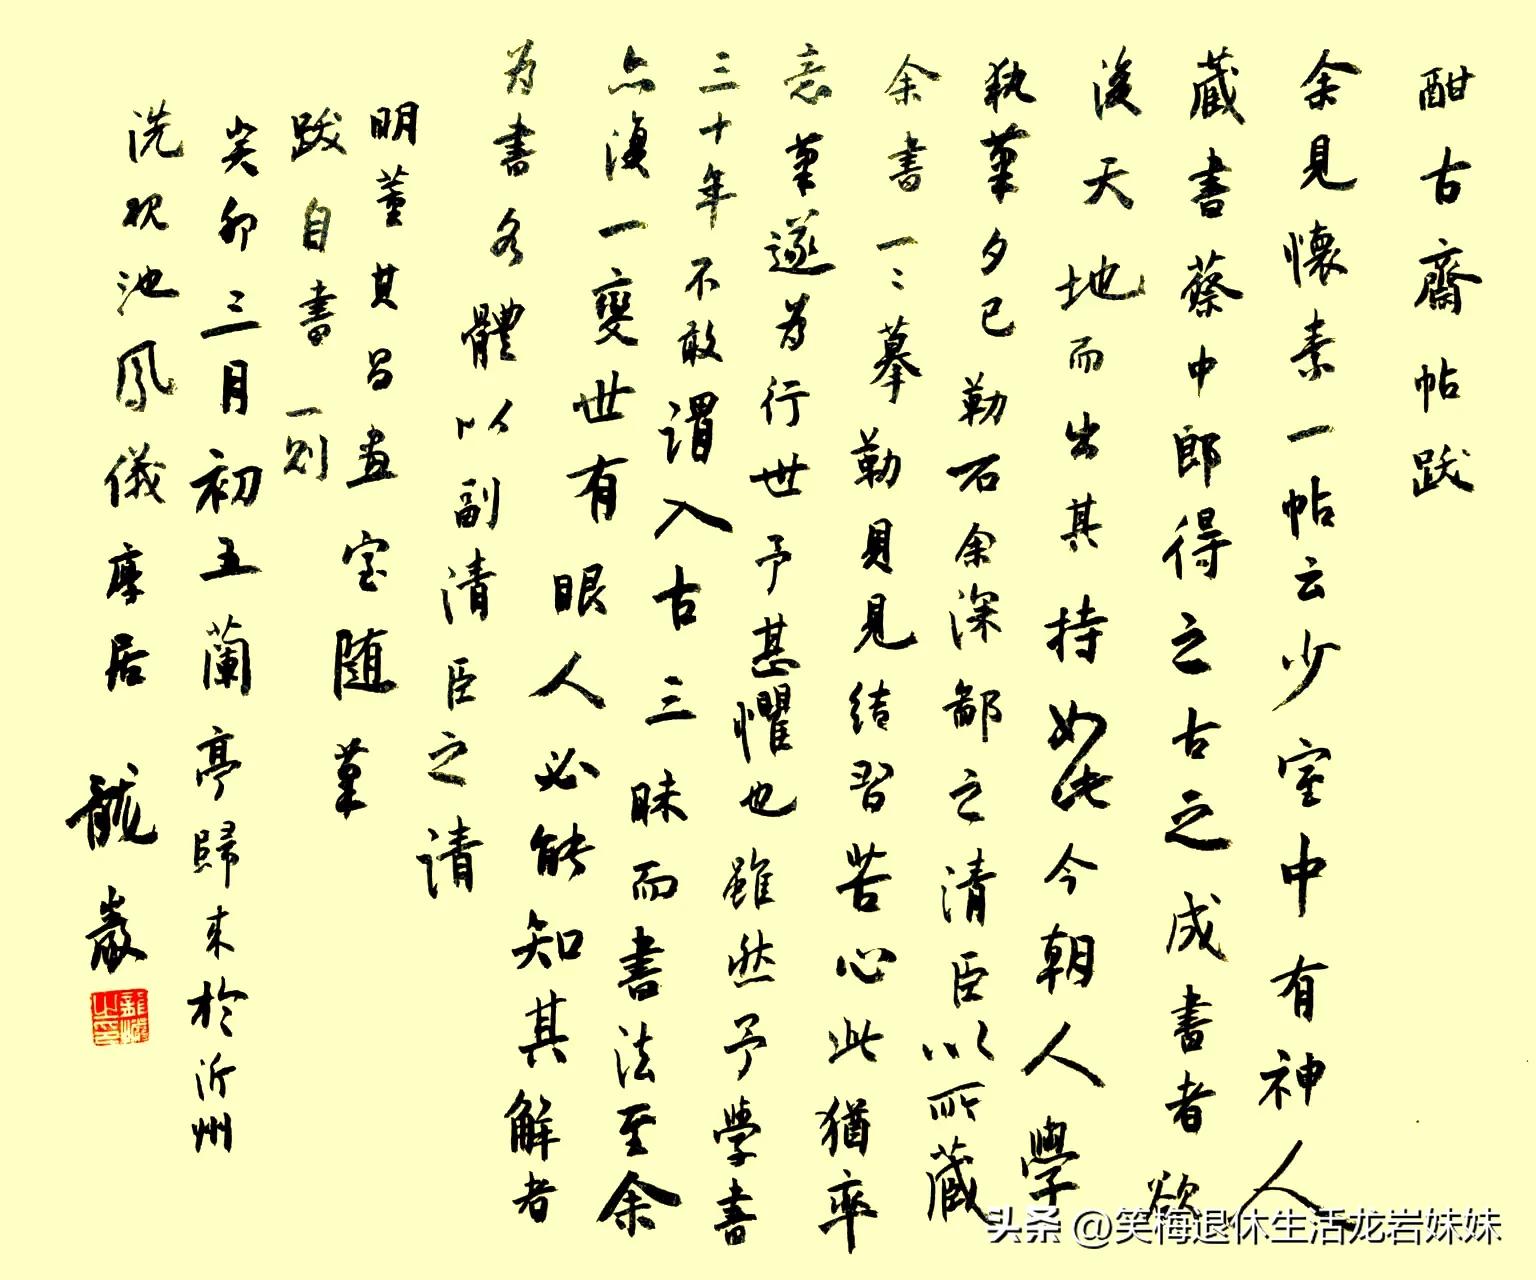 酣古齋帖跋
余見懷素一帖云少室中有神人
藏書蔡中郎得之古之成書者欲
後天地而出其持如此今朝人學
執筆夕已勒石余深鄙之清臣以所藏
余書一〻摹勒見結習苦心此猶率
意筆遂為行世予甚懼也雖然予學書
三十年不敢謂入古三昧而書法至余
亦復一變世有眼人必能知其解者
為書各體以副清臣之請
明董其昌畫室随筆
跋自書一則
癸卯三月初五蘭亭歸来於沂州
洗硯池鳳儀庭居 龍巖
头条 @笑梅退休生活龙岩妹妹